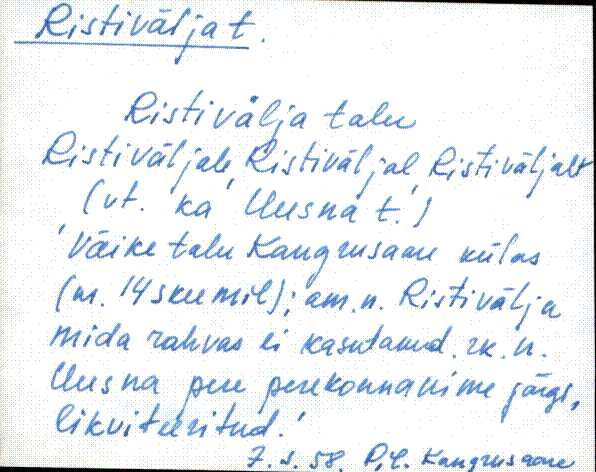 Ristivälja t.
Ristivälja talu
Ristiväljale, Ristiväljal, Ristiväljalt
(vt. ka Uusna t.)
'Väike talu Kangrusaare külas
(m. 14 skeemil); am. n. Ristivälja
mida rahvas ei kasutanud. rk. n.
Uusna pere perekonnanime järgi,
likvideeritud.'
Kangrusaare